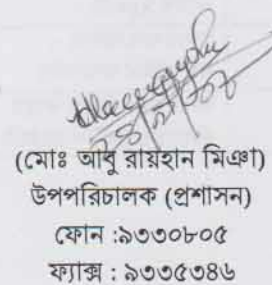 (মোঃ আবু রায়হান মিঞা)
উপপরিচালক (প্রশাসন)
ফোন :৯৩৩০৮০৫
ফ্যাক্স : ৯৩৩৫৩৪৬